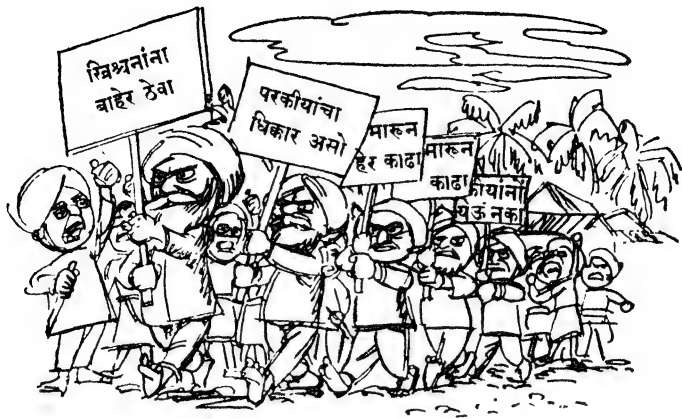 ख्रिश्चनांना
बाहेर ठेवा
परकीयांचा
धिक्कार असो
मारून
हेर काढा
मारून
काढा
कीयांना
येऊं नका